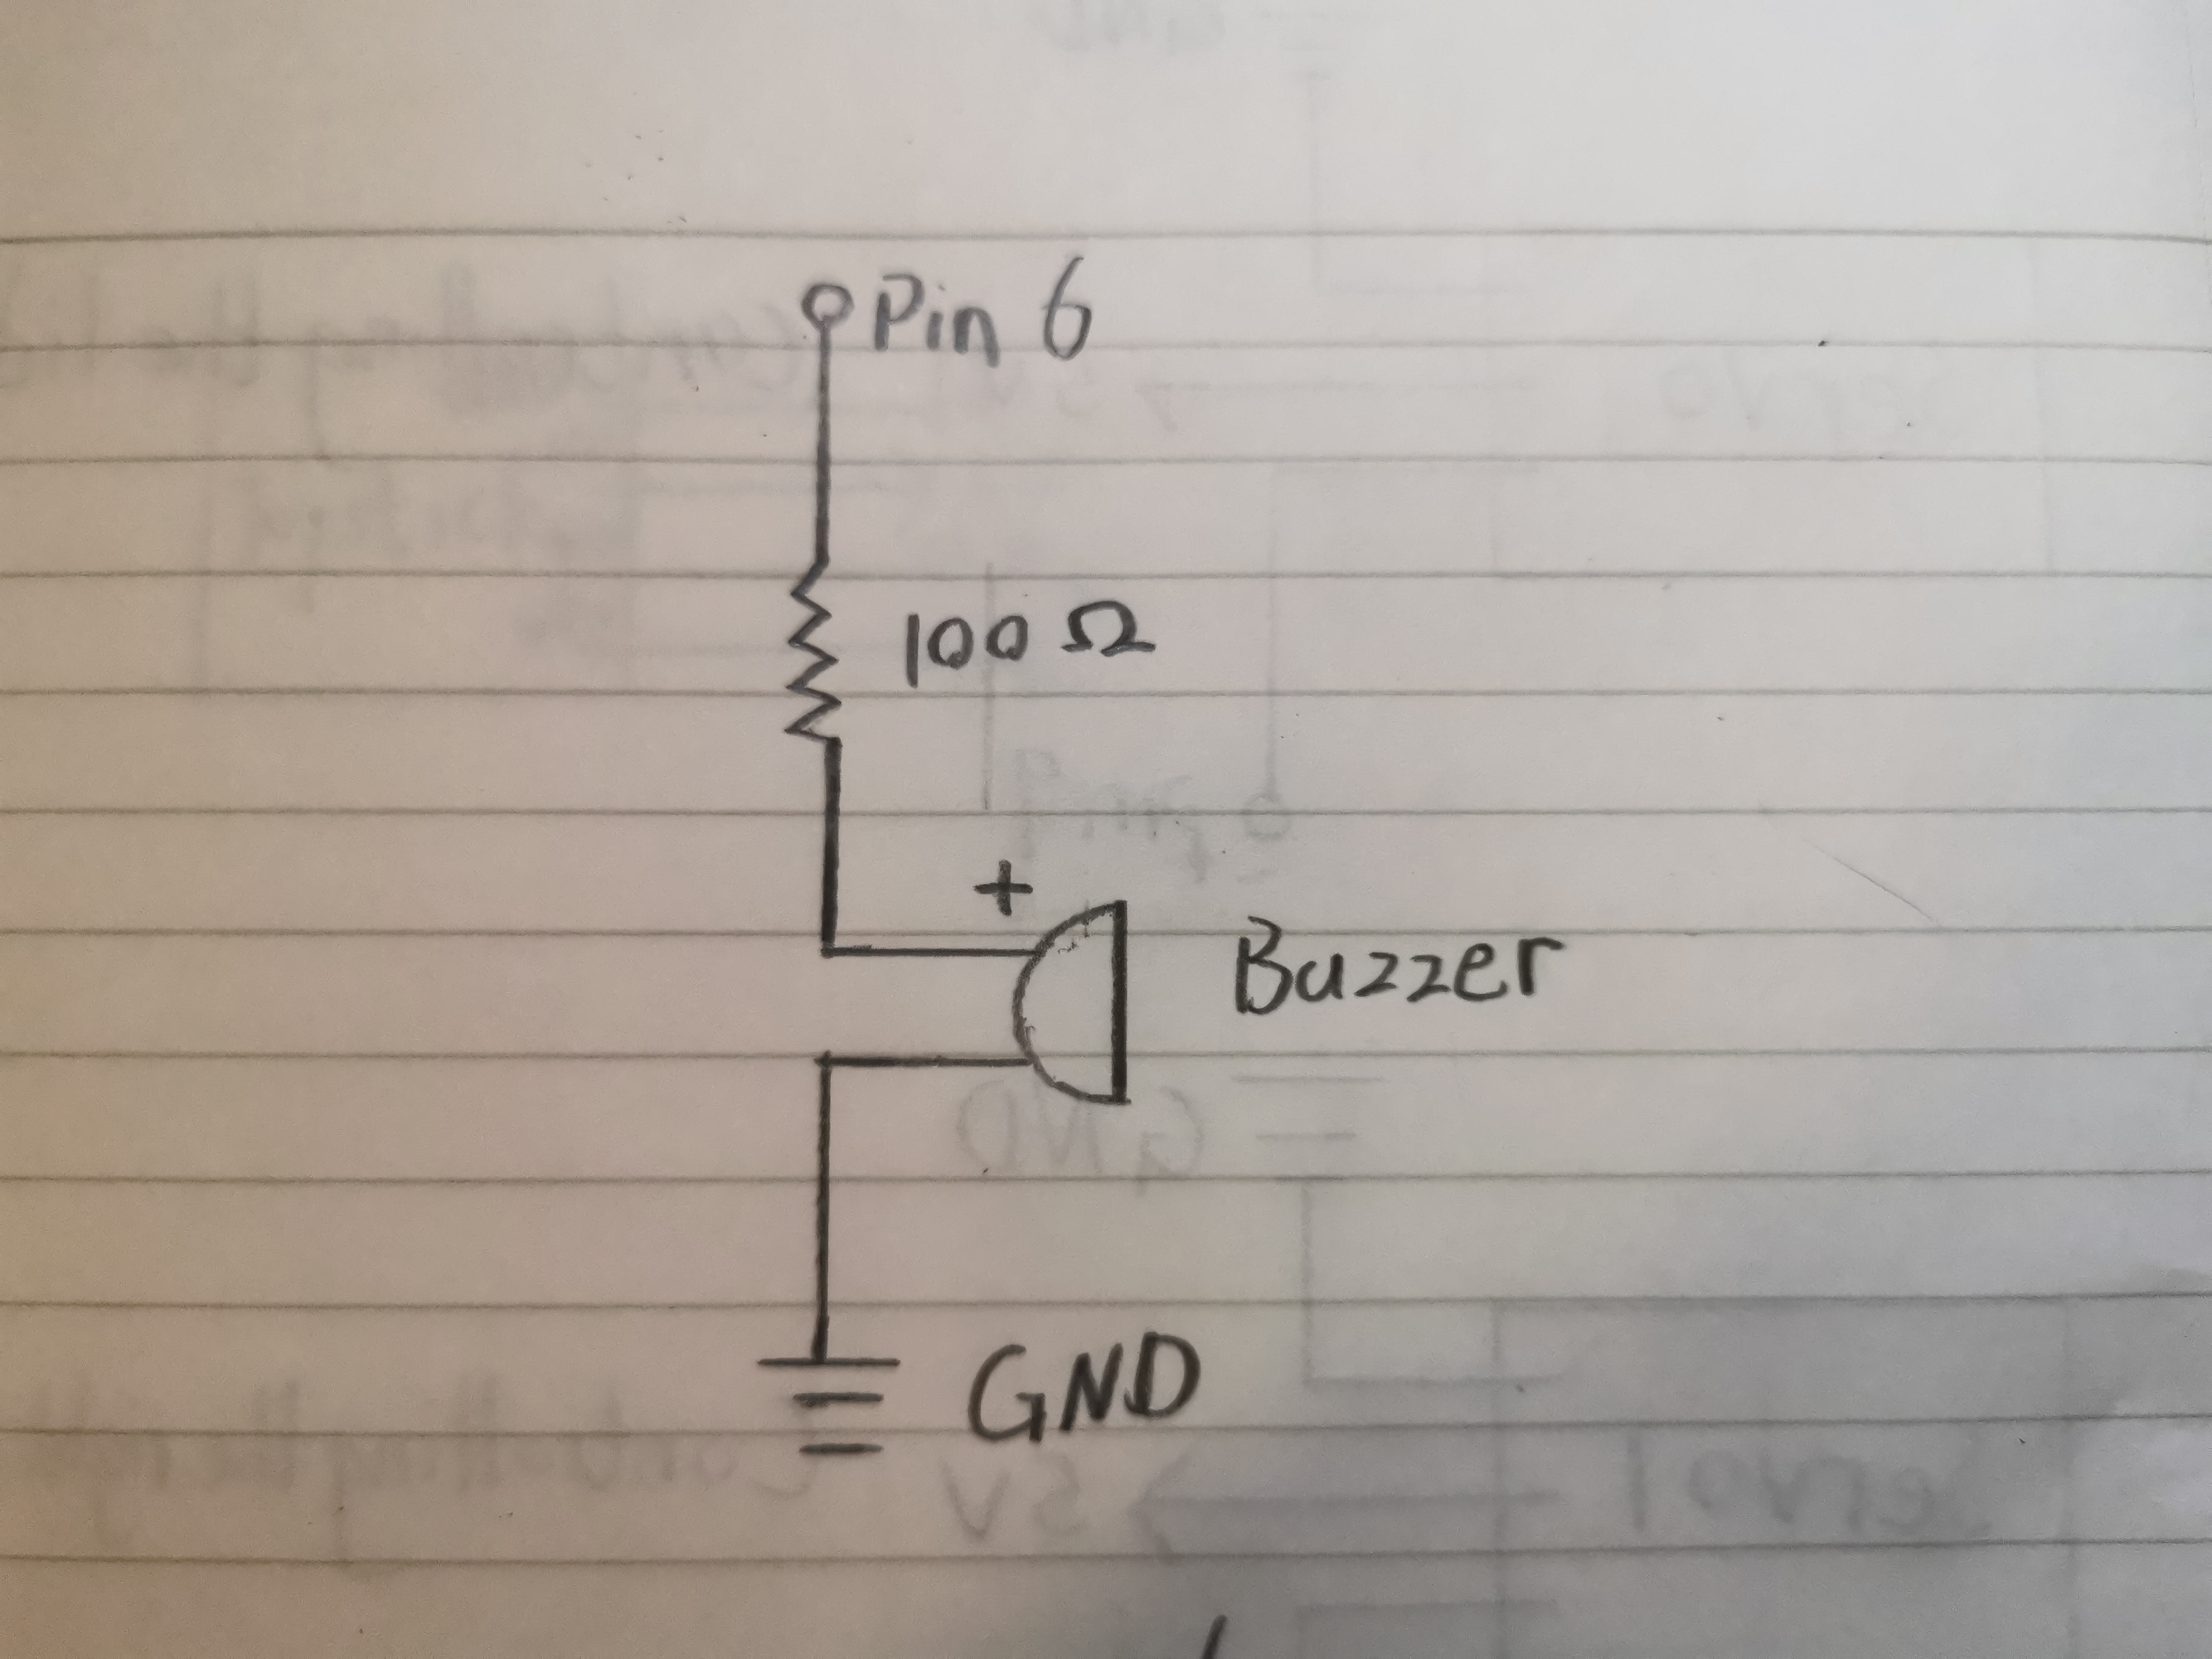 Pin 6
100 Ω
+
Buzzer
GND